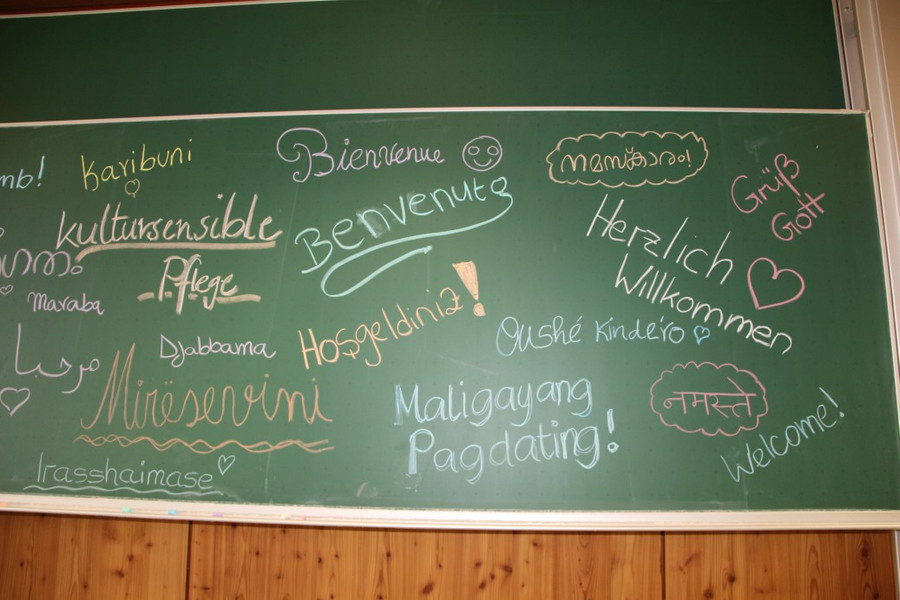 Karibuni
Bienvenue
നമസ്കാരം!
Grüß
Gott
kultursensible
Pflege
Benvenuto
Herzlich
Willkommen
Maraba
Hoşgeldiniz!
Oushé Kinde'ro
مرحبا
Djabbama
Mirësevini
Maligayang
Pagdating!
नमस्ते
Welcome!
Irasshaimase